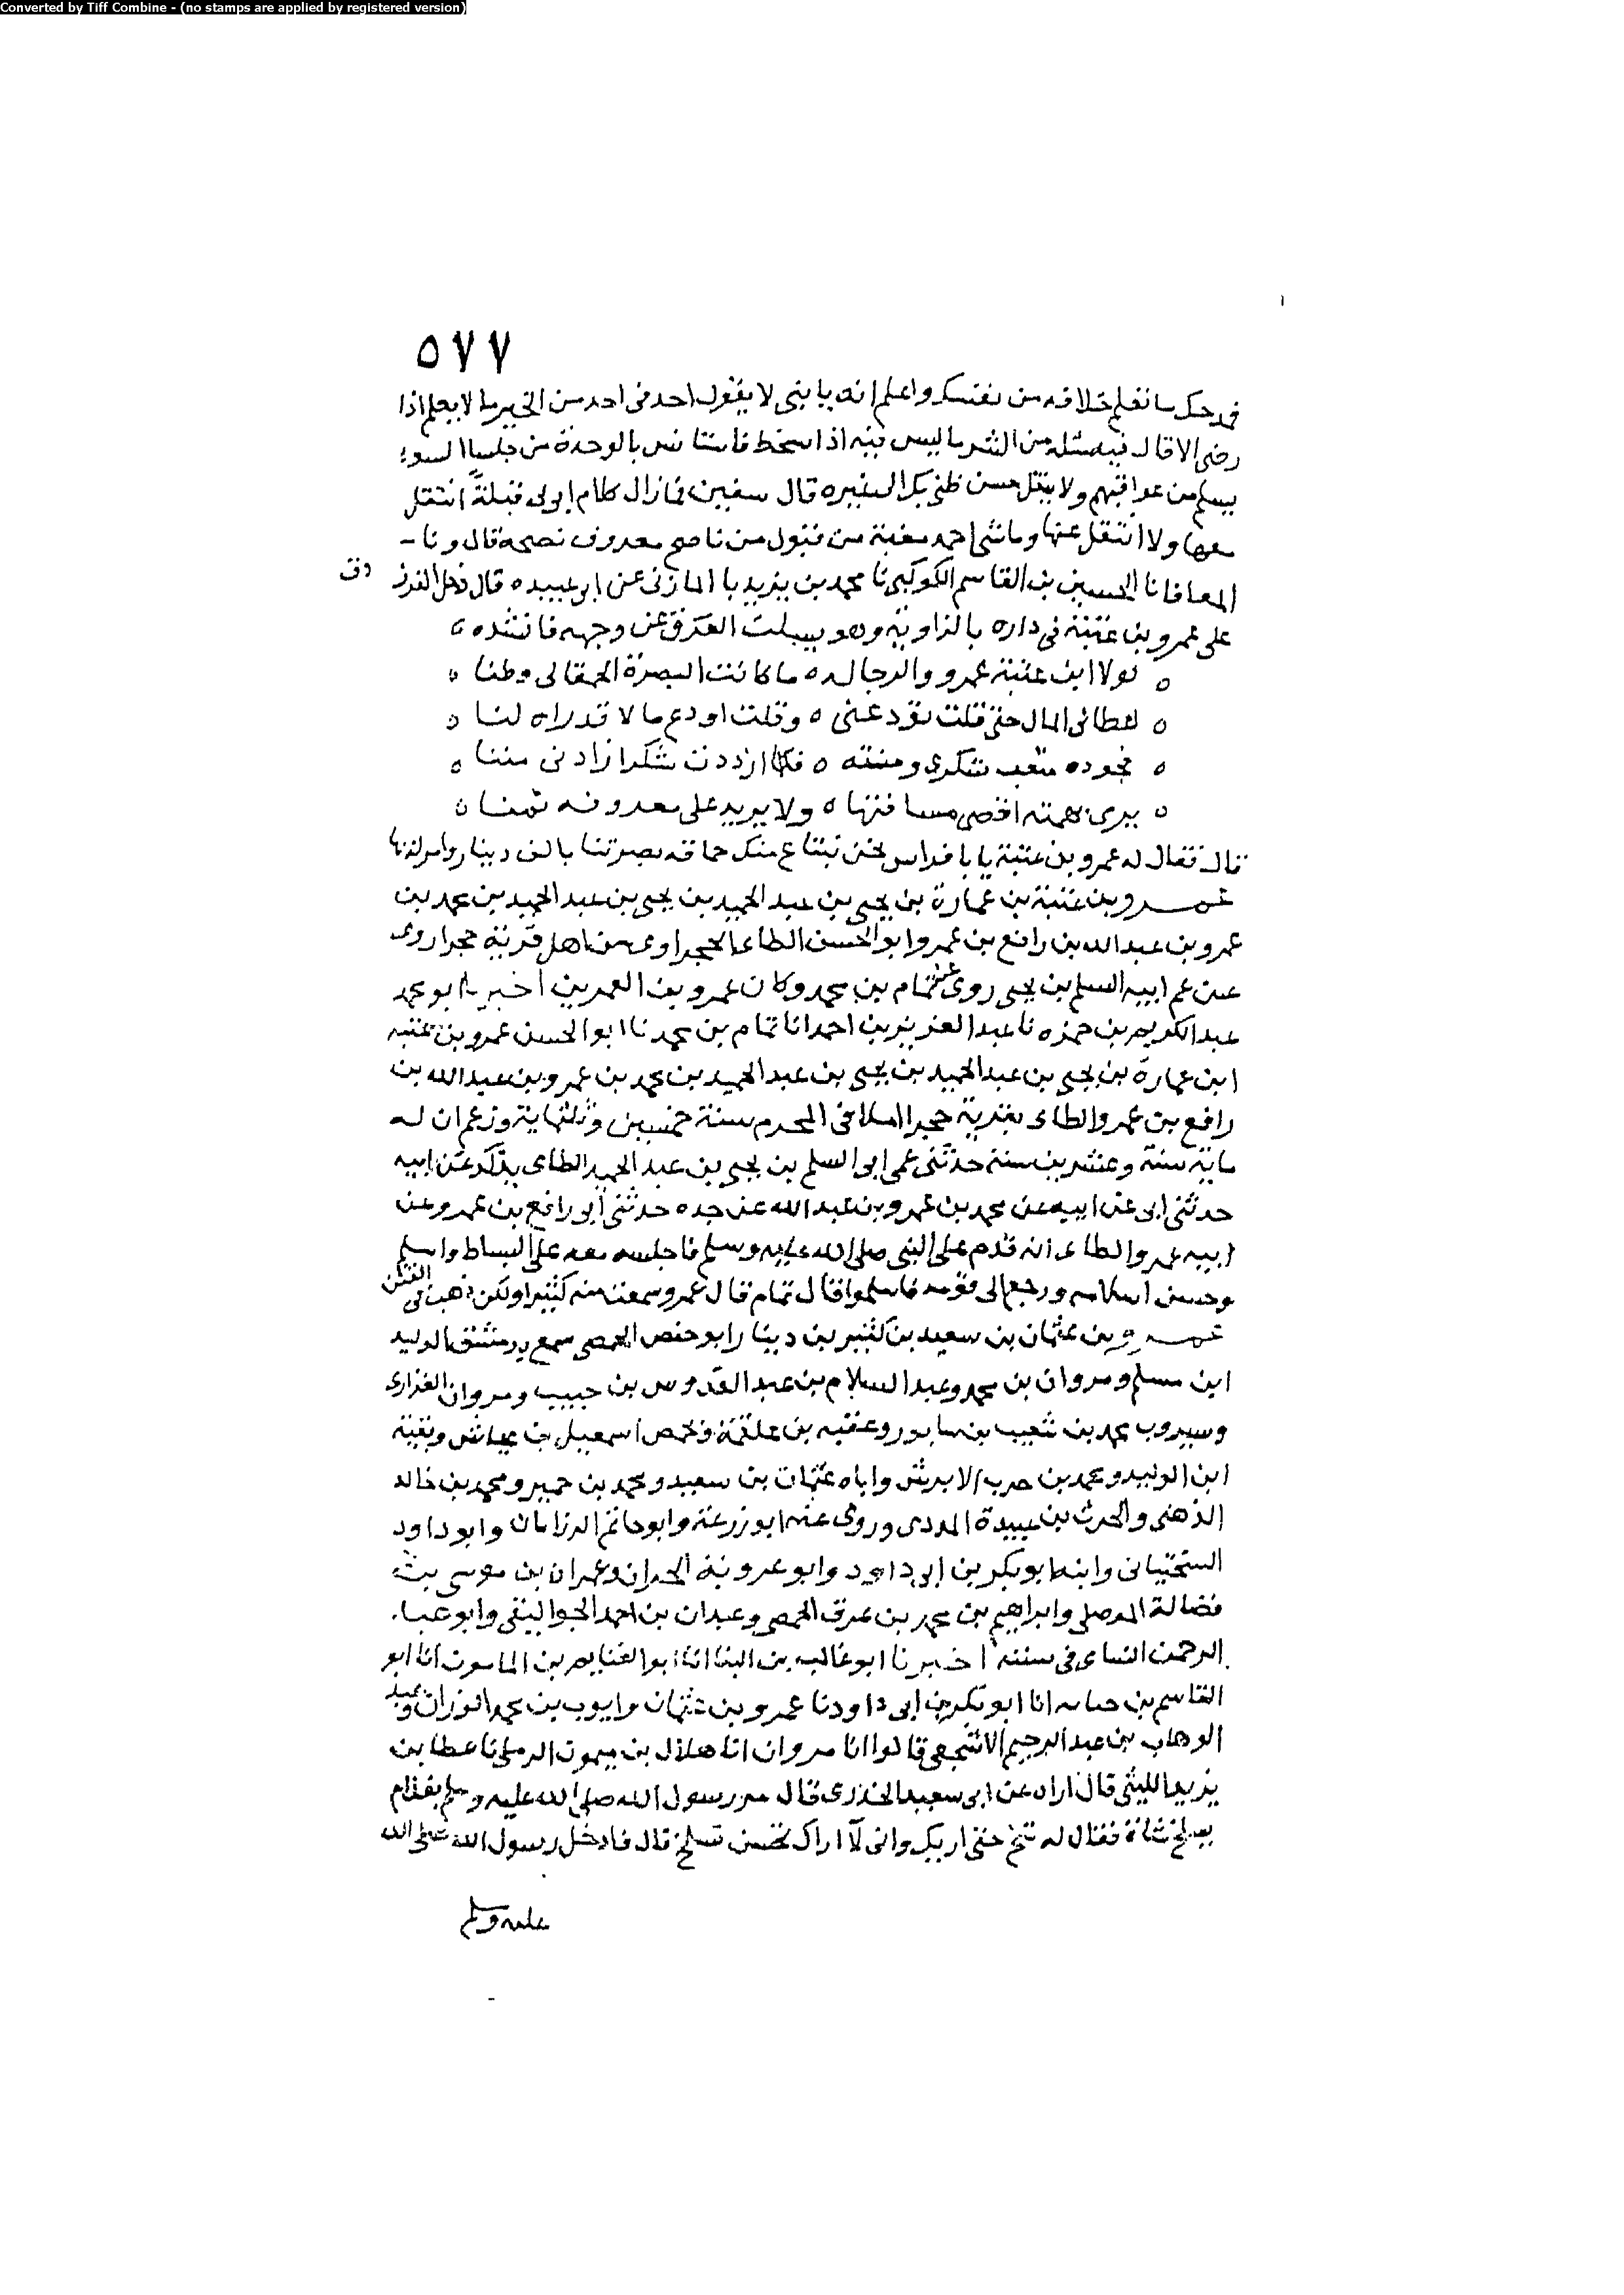 Converted by Tiff Combine - (no stamps are applied by registered version)
٥٧٧
مدحك ما تعلم خلافه من نفسك واعلم انه يا بنى لا يقول احد فى احد من الخير ما لا يعلم اذا
رضى الا قال فيه مثله من الشر ما ليس فيه اذا سخط فاستانس بالوحدة من جلسا السوء
يسلم من عواقبهم ولا ينقل حسن ظنى بك الى غيره قال سفين فما زال كلام ابى لى قبلةً انتقل
معها ولا انتقل عنها وما شى احمد مغبة من قبول من ناصح معروف نصحه قال ونا
المعافا نا الحسين بن القاسم الكوكبى نا محمد بن يزيد با المازنى عن ابى عبيده قال دخل الفرز دق
على عمرو بن عتبة فى داره بالزاوية وهو يسلت العرق عن وجهه فانشده ٥
٥ لولا ابن عتبة عمرو والرجا له ٥ ما كانت البصرة الحمقا لى وطنا ٥
٥ اعطانى المال حتى قلت يودعنى ٥ وقلت اودع مالا قد راه لنا ٥
٥ فجوده متعب شكرى ومنته ٥ فكلما ازددت شكرا زادنى مننا ٥
٥ يرى بهمته اقصى مسافتها ٥ ولا يريد على معروفه ثمنا ٥
قال فقال له عمرو بن عتبة يا با فراس نحن نبتاع منك حماقه بصرتنا بالف دينار وامر له بها
عمرو بن عتبة بن عمارة بن يحيى بن عبد الحميد بن يحيى بن عبد الحميد بن محمد بن
عمرو بن عبد الله بن رافع بن عمرو ابو الحسن الطاى الحجراوى من اهل قرية حجرا روى
عن عم ابيه السلم بن يحيى روى عنه تمام بن محمد وكان عمرو من المعمرين اخبرنا ابو محمد
عبد الكريم بن حمزه نا عبد العزيز بن احمد انا تمام بن محمد نا ابو الحسن عمرو بن عتبه
ابن عمارة بن يحيى بن عبد الحميد بن يحيى بن عبد الحميد بن محمد بن عمرو بن عبد الله بن
رافع بن عمرو الطاى بقرية حجرا املا فى المحرم سنة خمسين وثلثماية وزعم ان له
ماية سنة وعشرين سنة حدثنى عم ابى السلم بن يحيى بن عبد الحميد الطاى يذكر عن ابيه
حدثنى ابى عن ابيه عن محمد بن عمرو بن عبد الله عن جده حدثنى ابى رافع بن عمرو عن
ابيه عمرو الطاى انه قدم على النبى صلى الله عليه وسلم فاجلسه معه على البساط واسلم
وحسن اسلامه ورجع الى قومه فاسلموا قال تمام قال عمرو سمعت منه كثيرا ولكن ذهب فى الفتن
عمرو بن عثمان بن سعيد بن كثير بن دينار ابو حفص الحمصى سمع بدمشق الوليد
ابن مسلم ومروان بن محمد وعبد السلام بن عبد القدوس بن حبيب ومروان الفزارى
وسبروب محمد بن شعيب بن سابور وعقبه بن علقمة وبحمص اسمعيل بن عياش وبقية
ابن الوليد ومحمد بن حرب الابرش واباه عثمان بن سعيد ومحمد بن حمير ومحمد بن خالد
الذهنى والحرث بن عبيدة وروى عنه ابو زرعة وابو حاتم الرازيان وابو داود
السختيانى وابنه ابو بكر بن ابى داود وابو عروبة الحرانى وعمران بن موسى بن
فضالة الموصلى وابراهيم بن محمد بن عرق الحمصى وعبدان بن احمد الجواليقى وابو عبد
الرحمن النساى فى سننه اخبرنا ابو غالب بن البنا انا ابو الغنايم بن المامون انا ابو
القاسم بن حبابه انا ابو بكر بن ابى داود نا عمرو بن عثمان وايوب بن محمد الوزان وعبد
الوهاب بن عبد الرحيم الاشجعى قالوا انا مروان انا هلال بن ميمون الرملى نا عطا بن
يزيد الليثى قال اراه عن ابى سعيد الخدرى قال مر رسول الله صلى الله عليه وسلم بغلام
يسلخ شاة فقال له تنح حتى اريك وانى لا اراك تحسن تسلخ قال فادخل رسول الله صلى الله
عليه وسلم